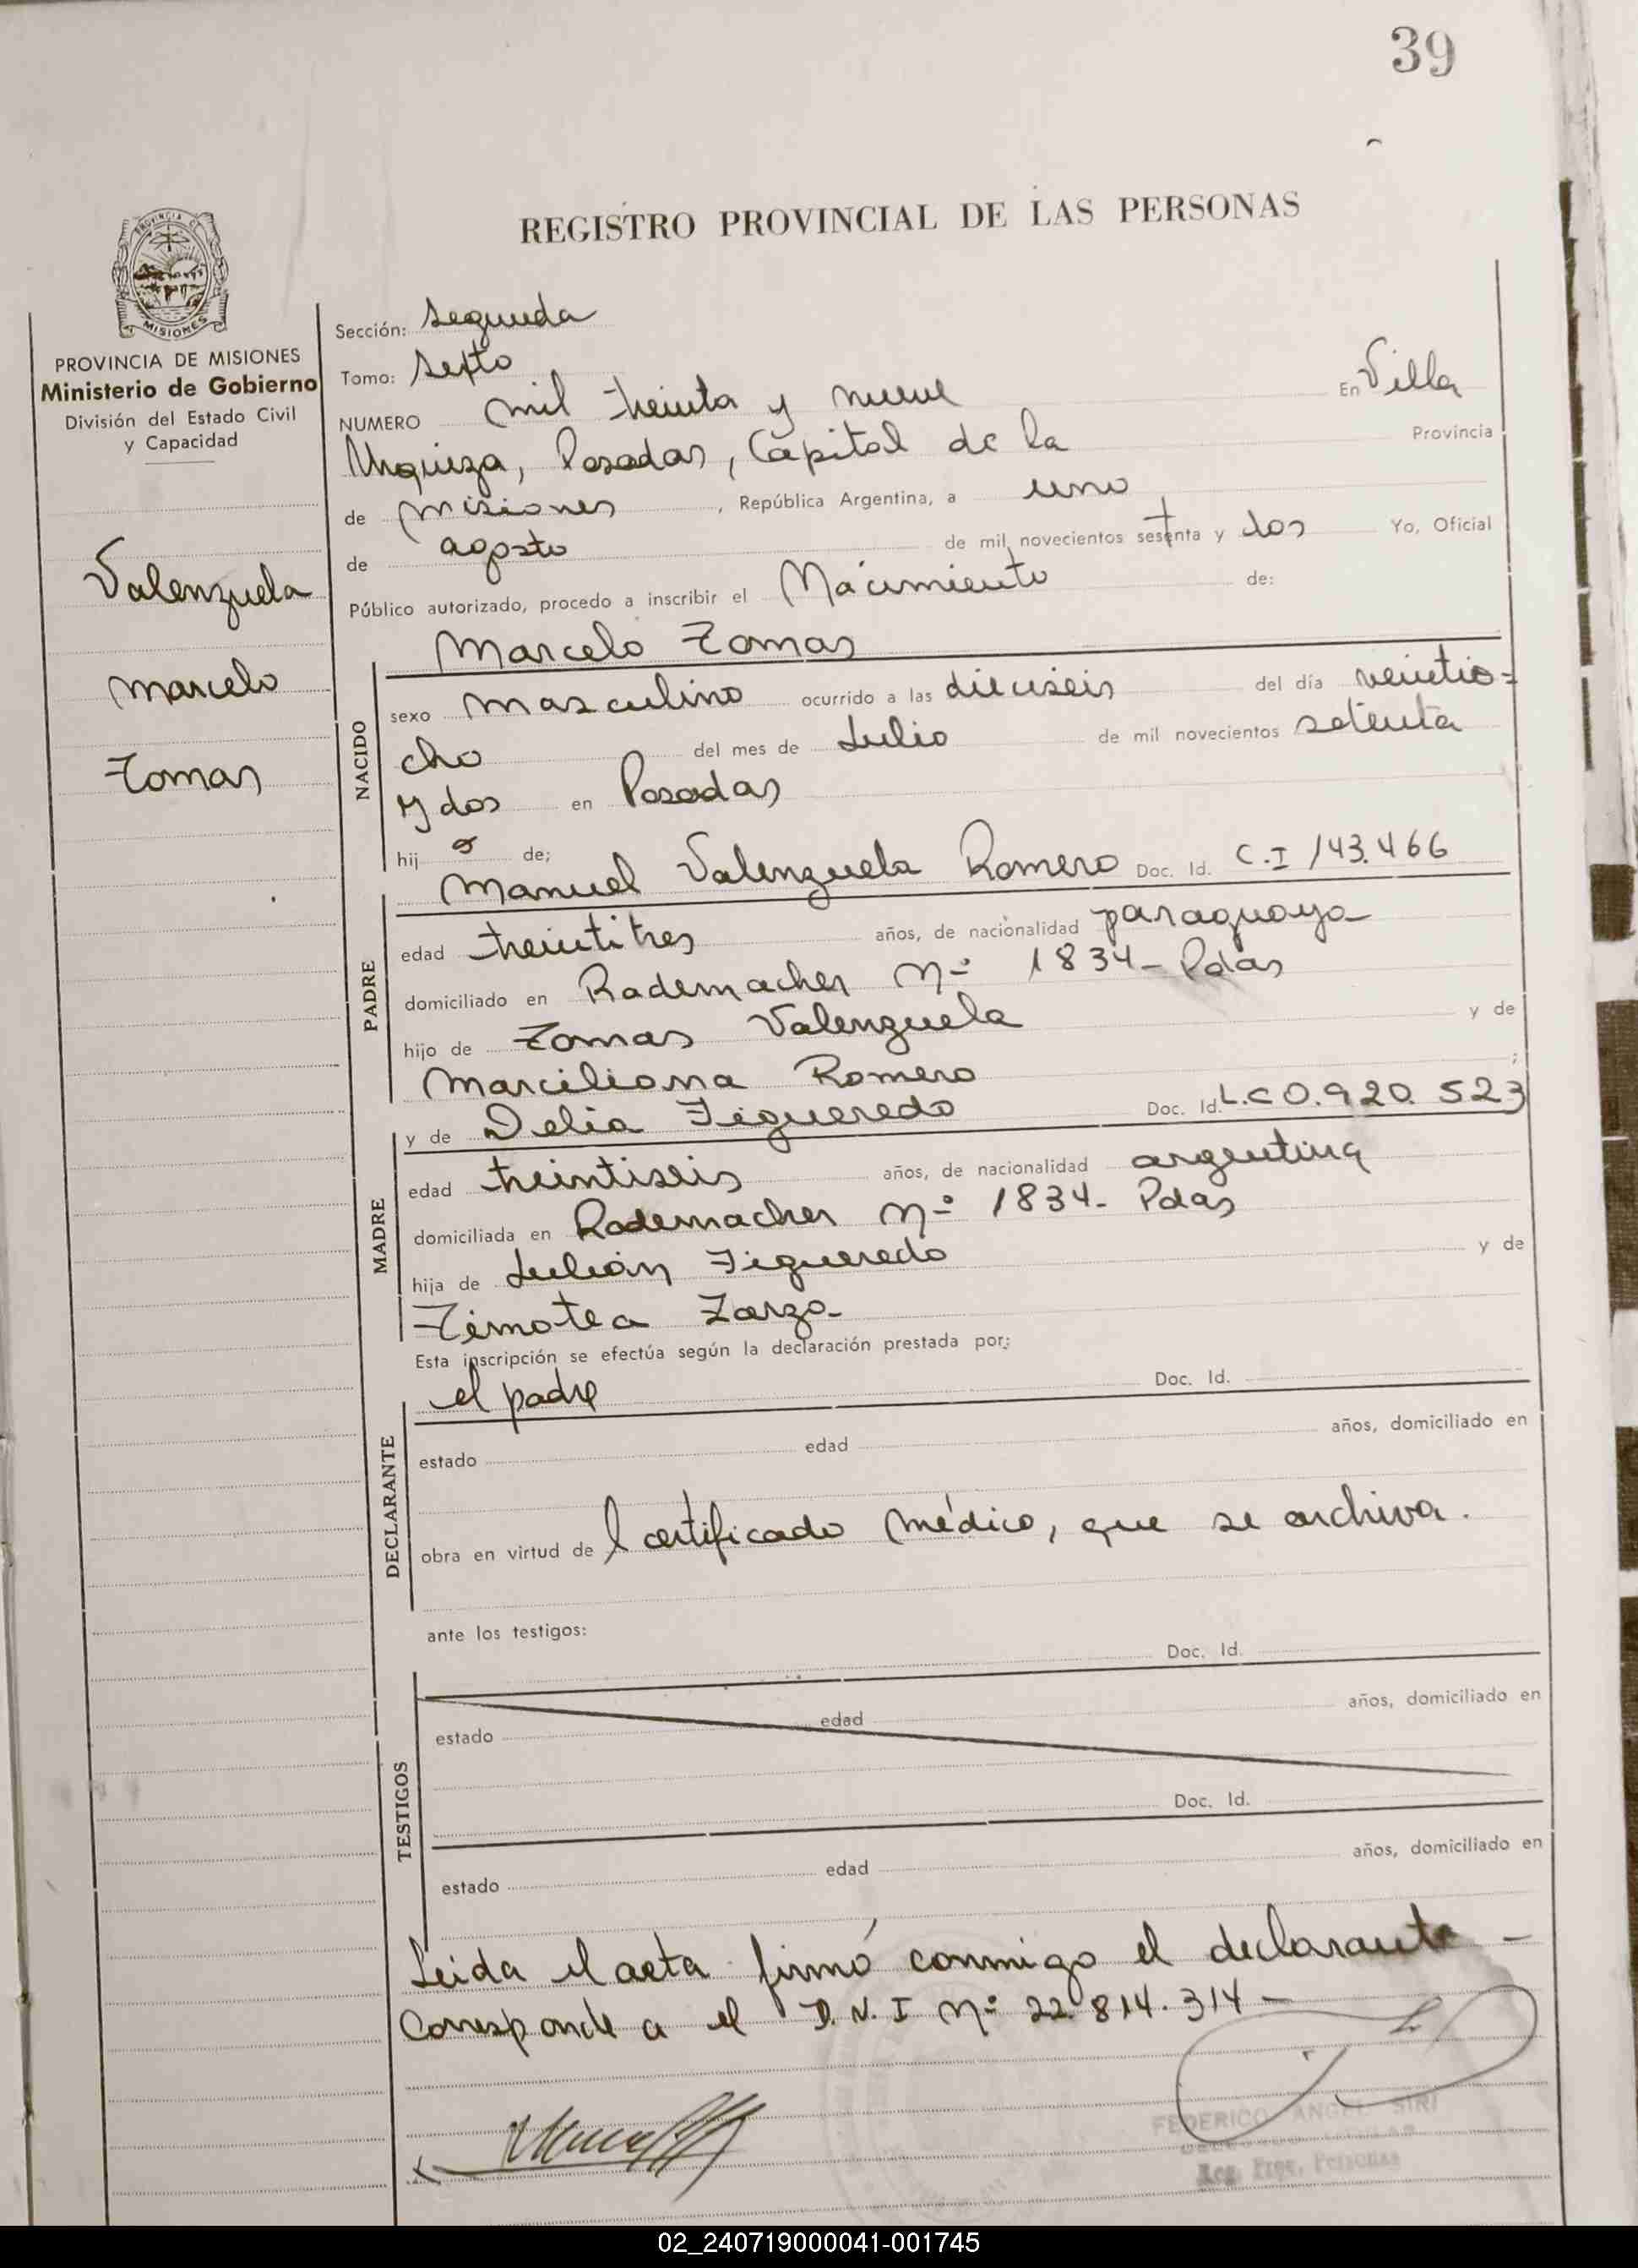 39
REGISTRO PROVINCIAL DE LAS PERSONAS
PROVINCIA DE MISIONES
MISIONES
PROVINCIA DE MISIONES
Ministerio de Gobierno
División del Estado Civil
y Capacidad
Valenzuela
Marcelo
Tomas
Sección: Segunda
Tomo: Sexto
NUMERO mil treinta y nueve En Villa
Urquiza, Posadas, Capital de la Provincia
de Misiones, República Argentina, a uno
de agosto de mil novecientos sesenta y dos Yo, Oficial
Público autorizado, procedo a inscribir el Nacimiento de:
Marcelo Tomas
NACIDO
sexo masculino ocurrido a las dieciseis del día veintio=
cho del mes de Julio de mil novecientos setenta
y dos en Posadas
hij o de;
Manuel Valenzuela Romero Doc. Id. C.I 143.466
PADRE
edad treintitres años, de nacionalidad paraguaya
domiciliado en Rademacher Nº 1834- Pdas
hijo de Tomas Valenzuela y de
Marciliana Romero ;
y de Delia Figueredo Doc. Id. L.C 0.920.523
MADRE
edad treintiseis años, de nacionalidad argentina
domiciliada en Rademacher Nº 1834- Pdas
hija de Julián Figueredo y de
Timotea Zarza
Esta inscripción se efectúa según la declaración prestada por;
el padre Doc. Id.
DECLARANTE
estado edad años, domiciliado en
obra en virtud de l certificado médico, que se archiva.
ante los testigos:
Doc. Id.
TESTIGOS
estado edad años, domiciliado en
Doc. Id.
estado edad años, domiciliado en
Leida el acta firmó conmigo el declarante -
Corresponde a el D.N.I Nº 22.814.314-
FEDERICO ANGEL SIRI
Reg. Prov. Personas
02_240719000041-001745